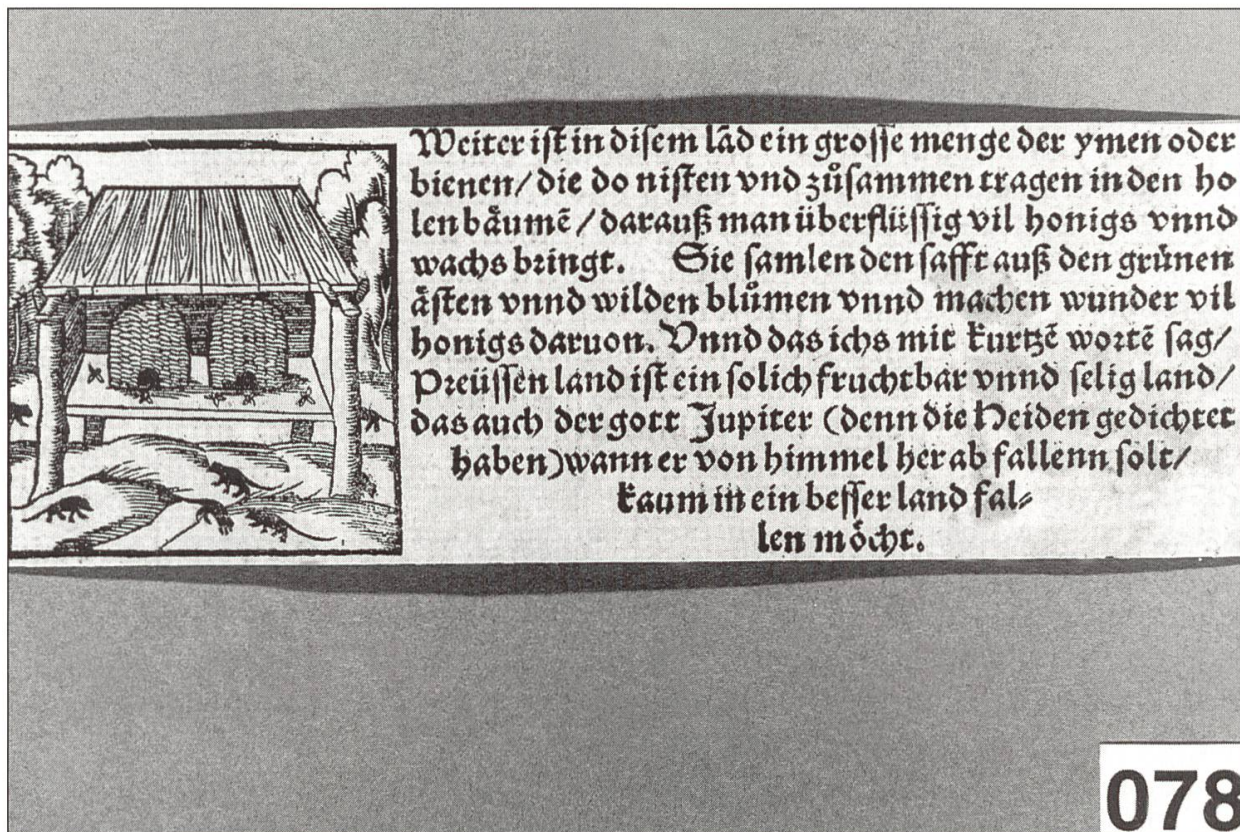 Weiter ist in disem lãd ein grosse menge der ymen oder
bienen/ die do nisten vnd zůsammen tragen in den ho
len bäumẽ/ darauß man überflüssig vil honigs vnnd
wachs bringt. Sie samlen den safft auß den grünen
ästen vnnd wilden blůmen vnnd machen wunder vil
honigs daruon. Vnnd das ichs mit kurtzẽ wortẽ sag/
Preüssen land ist ein solich fruchtbar vnnd selig land/
das auch der gott Jupiter (denn die Heiden gedichtet
haben)wann er von himmel her ab fallenn solt/
kaum in ein besser land fal⸗
len möcht.
078